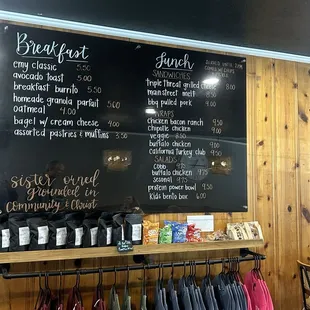 Breakfast
emy classic 5.50
avocado toast 5.00
breakfast burrito 5.50
homeade granola parfait 5.00
oatmeal 4.00
bagel w/ cream cheese 4.00
assorted pastries & muffins 3.50
sister owned
Grounded in
Community & Christ
Lunch
SANDWICHES
Triple threat grilled cheese 8.00
main street melt 8.00
bbq pulled pork
WRAPS
chicken bacon ranch
Chipotle chicken 9.00
veggie
buffalo chicken
California turkey club
SALADS
cobb
buffalo chicken
seasonal
protein power bowl
Kids bento box